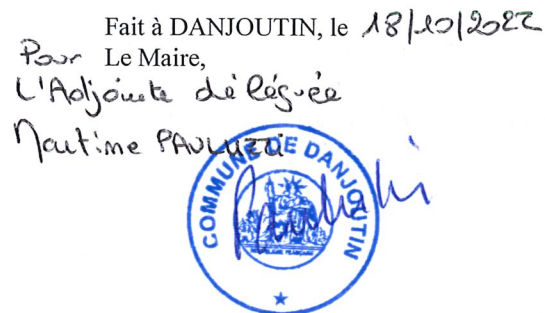 Fait à DANJOUTIN, le 18/10/2022
Pour Le Maire,
L'Adjointe déléguée
Martine PAULUZZI
COMMUNE DE DANJOUTIN